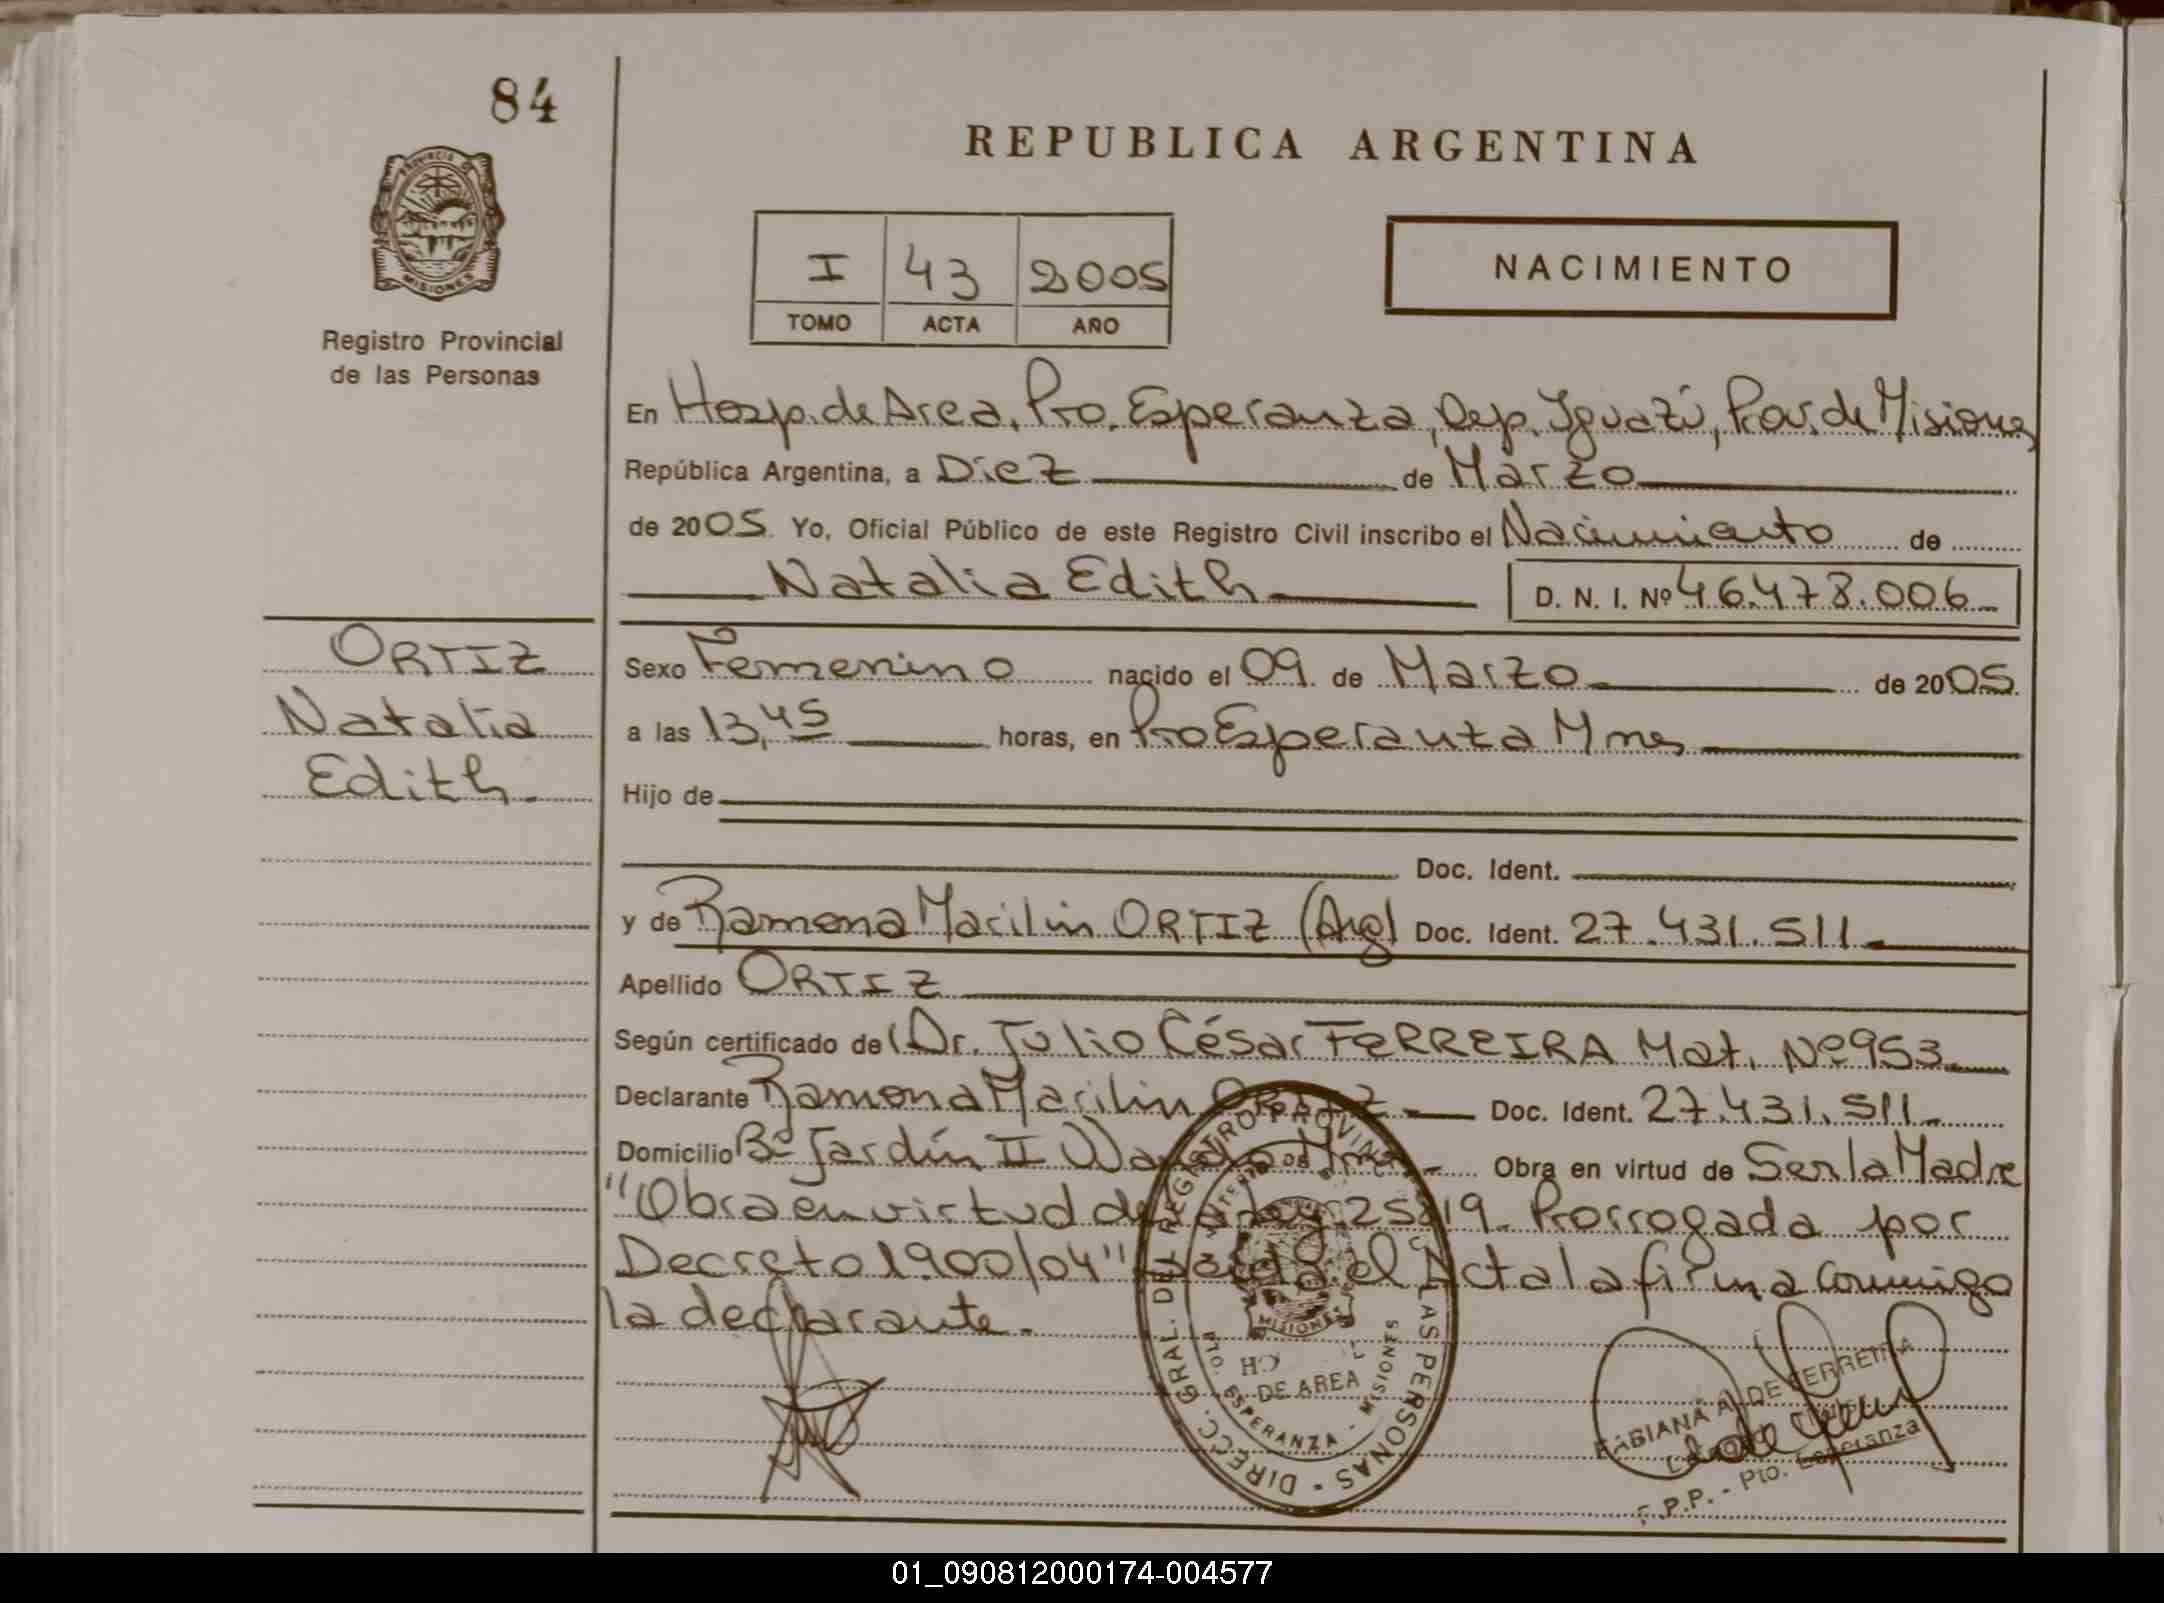 84
REPUBLICA ARGENTINA
PROVINCIA DE
MISIONES
Registro Provincial
de las Personas
I 43 2005
TOMO ACTA AÑO
NACIMIENTO
En Hosp. de Area, Pto. Esperanza, Dep. Iguazú, Prov. de Misiones
República Argentina, a Diez de Marzo
de 2005. Yo, Oficial Público de este Registro Civil inscribo el Nacimiento de
Natalia Edith D. N. I. Nº 46.478.006
ORTIZ
Natalia
Edith
Sexo Femenino nacido el 09 de Marzo de 2005
a las 13,45 horas, en Pto Esperanza Mnes
Hijo de
Doc. Ident.
y de Ramona Marilin ORTIZ (Arg) Doc. Ident. 27.431.511
Apellido ORTIZ
Según certificado de Dr. Julio César FERREIRA Mat. Nº 953
Declarante Ramona Marilin ORTIZ Doc. Ident. 27.431.511
Domicilio Bº Jardín II Wanda Mnes Obra en virtud de Ser la Madre
"Obra en virtud de la Ley 25819 Prorrogada por
Decreto 1900/04" el Acta la firma conmigo
la declarante.
DIRECC. GRAL. DEL REGISTRO PROVINCIAL DE LAS PERSONAS
MISIONES
DE AREA
ESPERANZA - MISIONES
FABIANA A. DE FERREIRA
R.P.P. - Pto. Esperanza
01_090812000174-004577